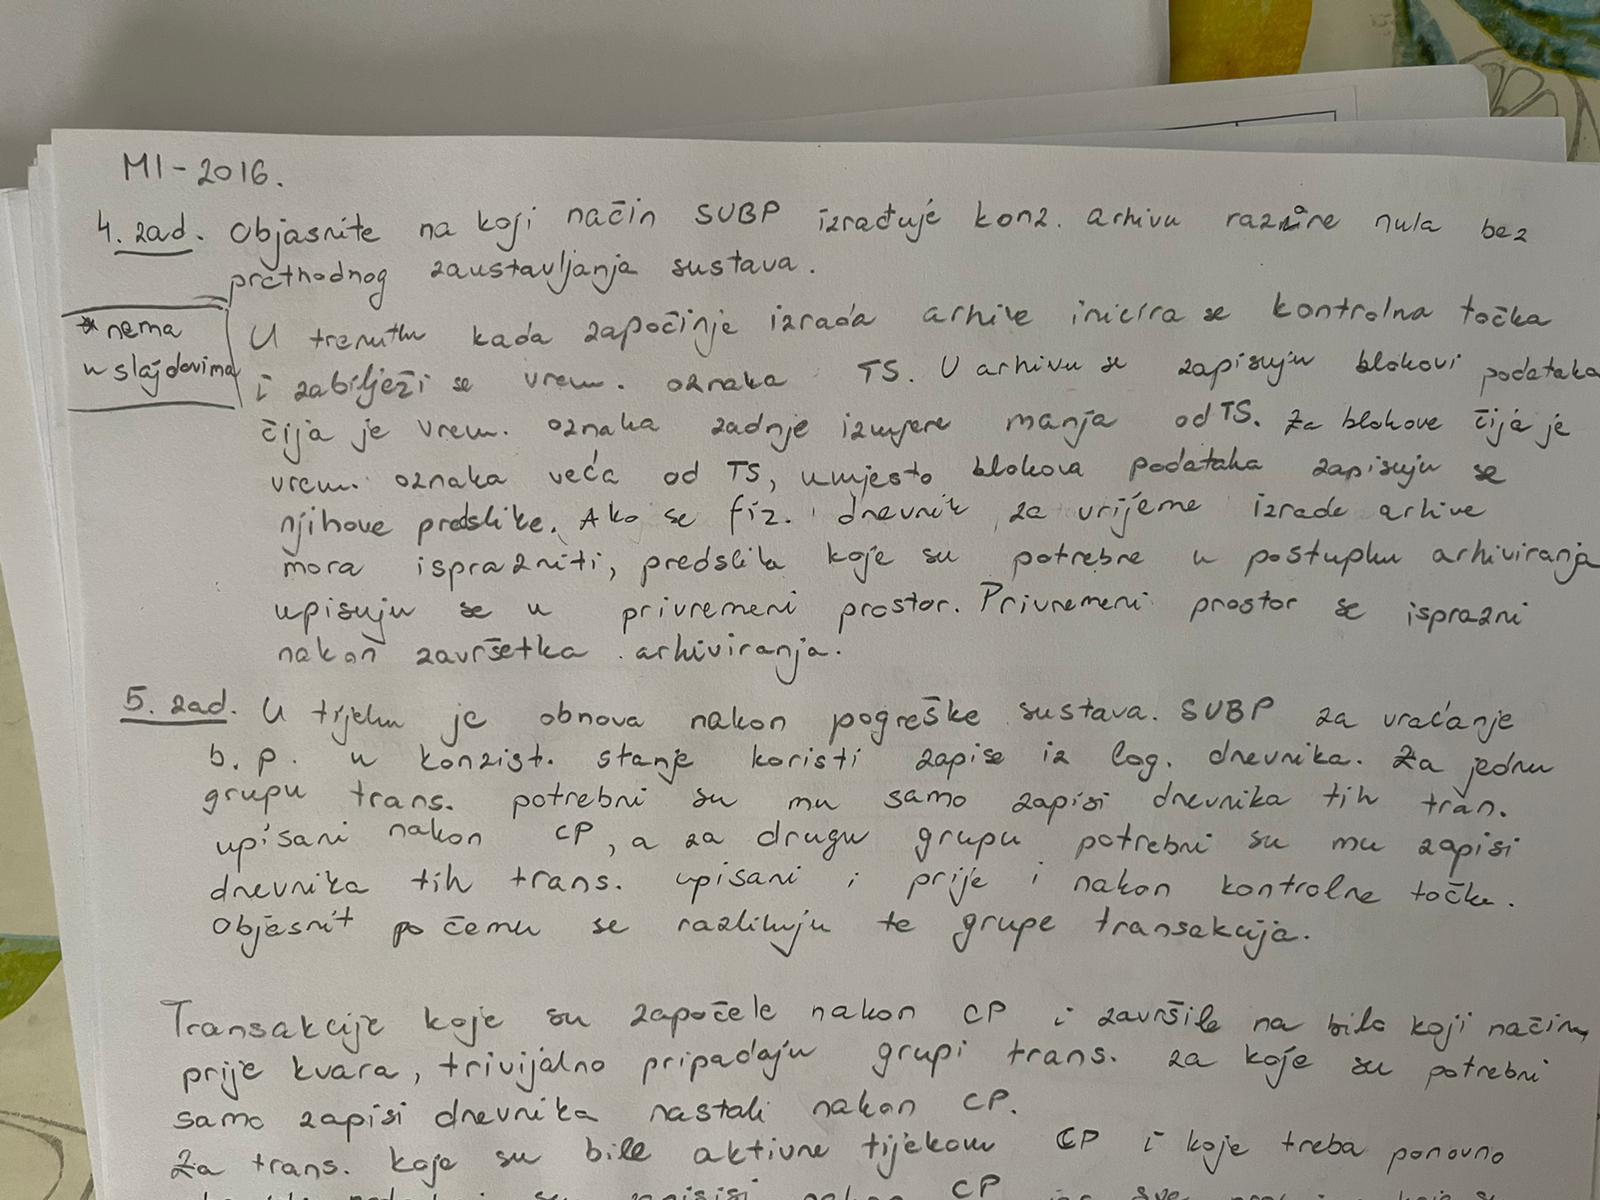 MI - 2016.
4. zad. Objasnite na koji način SUBP izrađuje konz. arhivu razine nula bez
prethodnog zaustavljanja sustava.
* nema
u slajdovima
U trenutku kada započinje izrada arhive inicira se kontrolna točka
i zabilježi se vrem. oznaka TS. U arhivu se zapisuju blokovi podataka
čija je vrem. oznaka zadnje izmjene manja od TS. Za blokove čija je
vrem. oznaka veća od TS, umjesto blokova podataka zapisuju se
njihove predslike. Ako se fiz. dnevnik za vrijeme izrade arhive
mora isprazniti, predslike koje su potrebne u postupku arhiviranja
upisuju se u privremeni prostor. Privremeni prostor se isprazni
nakon završetka arhiviranja.
5. zad. U tijeku je obnova nakon pogreške sustava. SUBP za vraćanje
b. p. u konzist. stanje koristi zapise iz log. dnevnika. Za jednu
grupu trans. potrebni su mu samo zapisi dnevnika tih tran.
upisani nakon CP, a za drugu grupu potrebni su mu zapisi
dnevnika tih trans. upisani i prije i nakon kontrolne točke.
Objasnit po čemu se razlikuju te grupe transakcija.
Transakcije koje su započele nakon CP i završile na bilo koji način,
prije kvara, trivijalno pripadaju grupi trans. za koje su potrebni
samo zapisi dnevnika nastali nakon CP.
Za trans. koje su bile aktivne tijekom CP i koje treba ponovno
su zapisi nakon CP